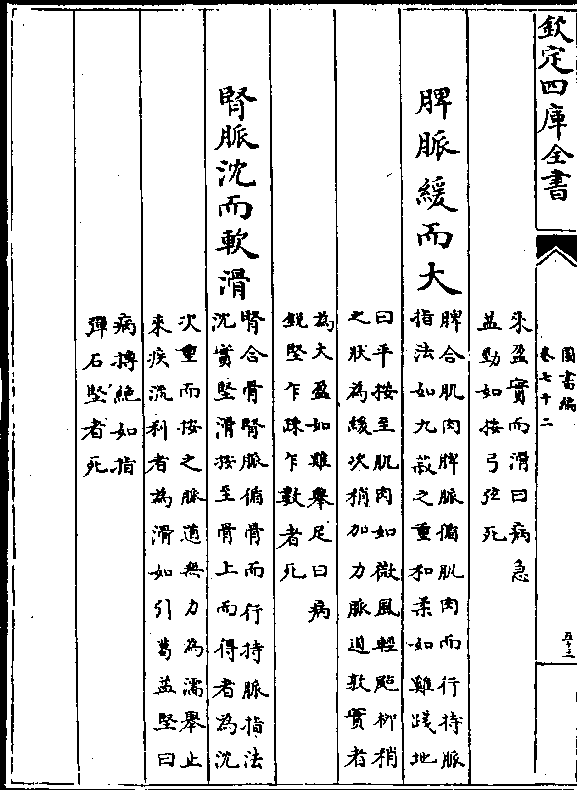 欽定四庫全書
圖書編
卷七十二
來盈實而滑曰病急
益勁如按弓弦死
脾脈緩而大
脾合肌肉脾脈偱肌肉而行持脈
指法如九菽之重和柔如雞踐地
曰平按至肌肉如微風輕颭柳梢
之狀為緩次稍加力脈道敦實者
為大盈如雞舉足曰病
鋭堅乍踈乍數者死
腎脈沈而軟滑
腎合骨腎脈偱骨而行持脈指法
沈實堅滑按至骨上而得者為沈
次重而按之脈道無力為濡舉止
來疾流利者為滑如引葛益堅曰
病搏絶如指
彈石堅者死